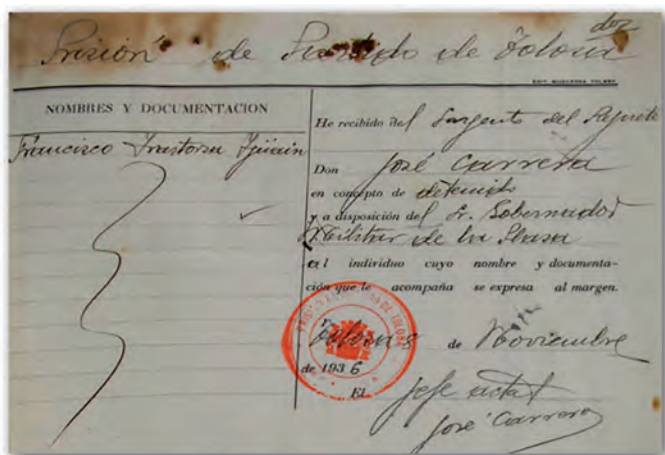 dos
Prisión de Partido de Tolosa
NOMBRES Y DOCUMENTACION
Francisco Irastorza
He recibido del Sargento del Requeté
Don José Carrera
en concepto de detenido
y a disposición del Sr. Gobernador
Militar de la Plasa
al individuo cuyo nombre y documenta-
ción que le acompaña se expresa al margen.
Tolosa 8 de Noviembre
de 1936
El Jefe actal
José Carrera